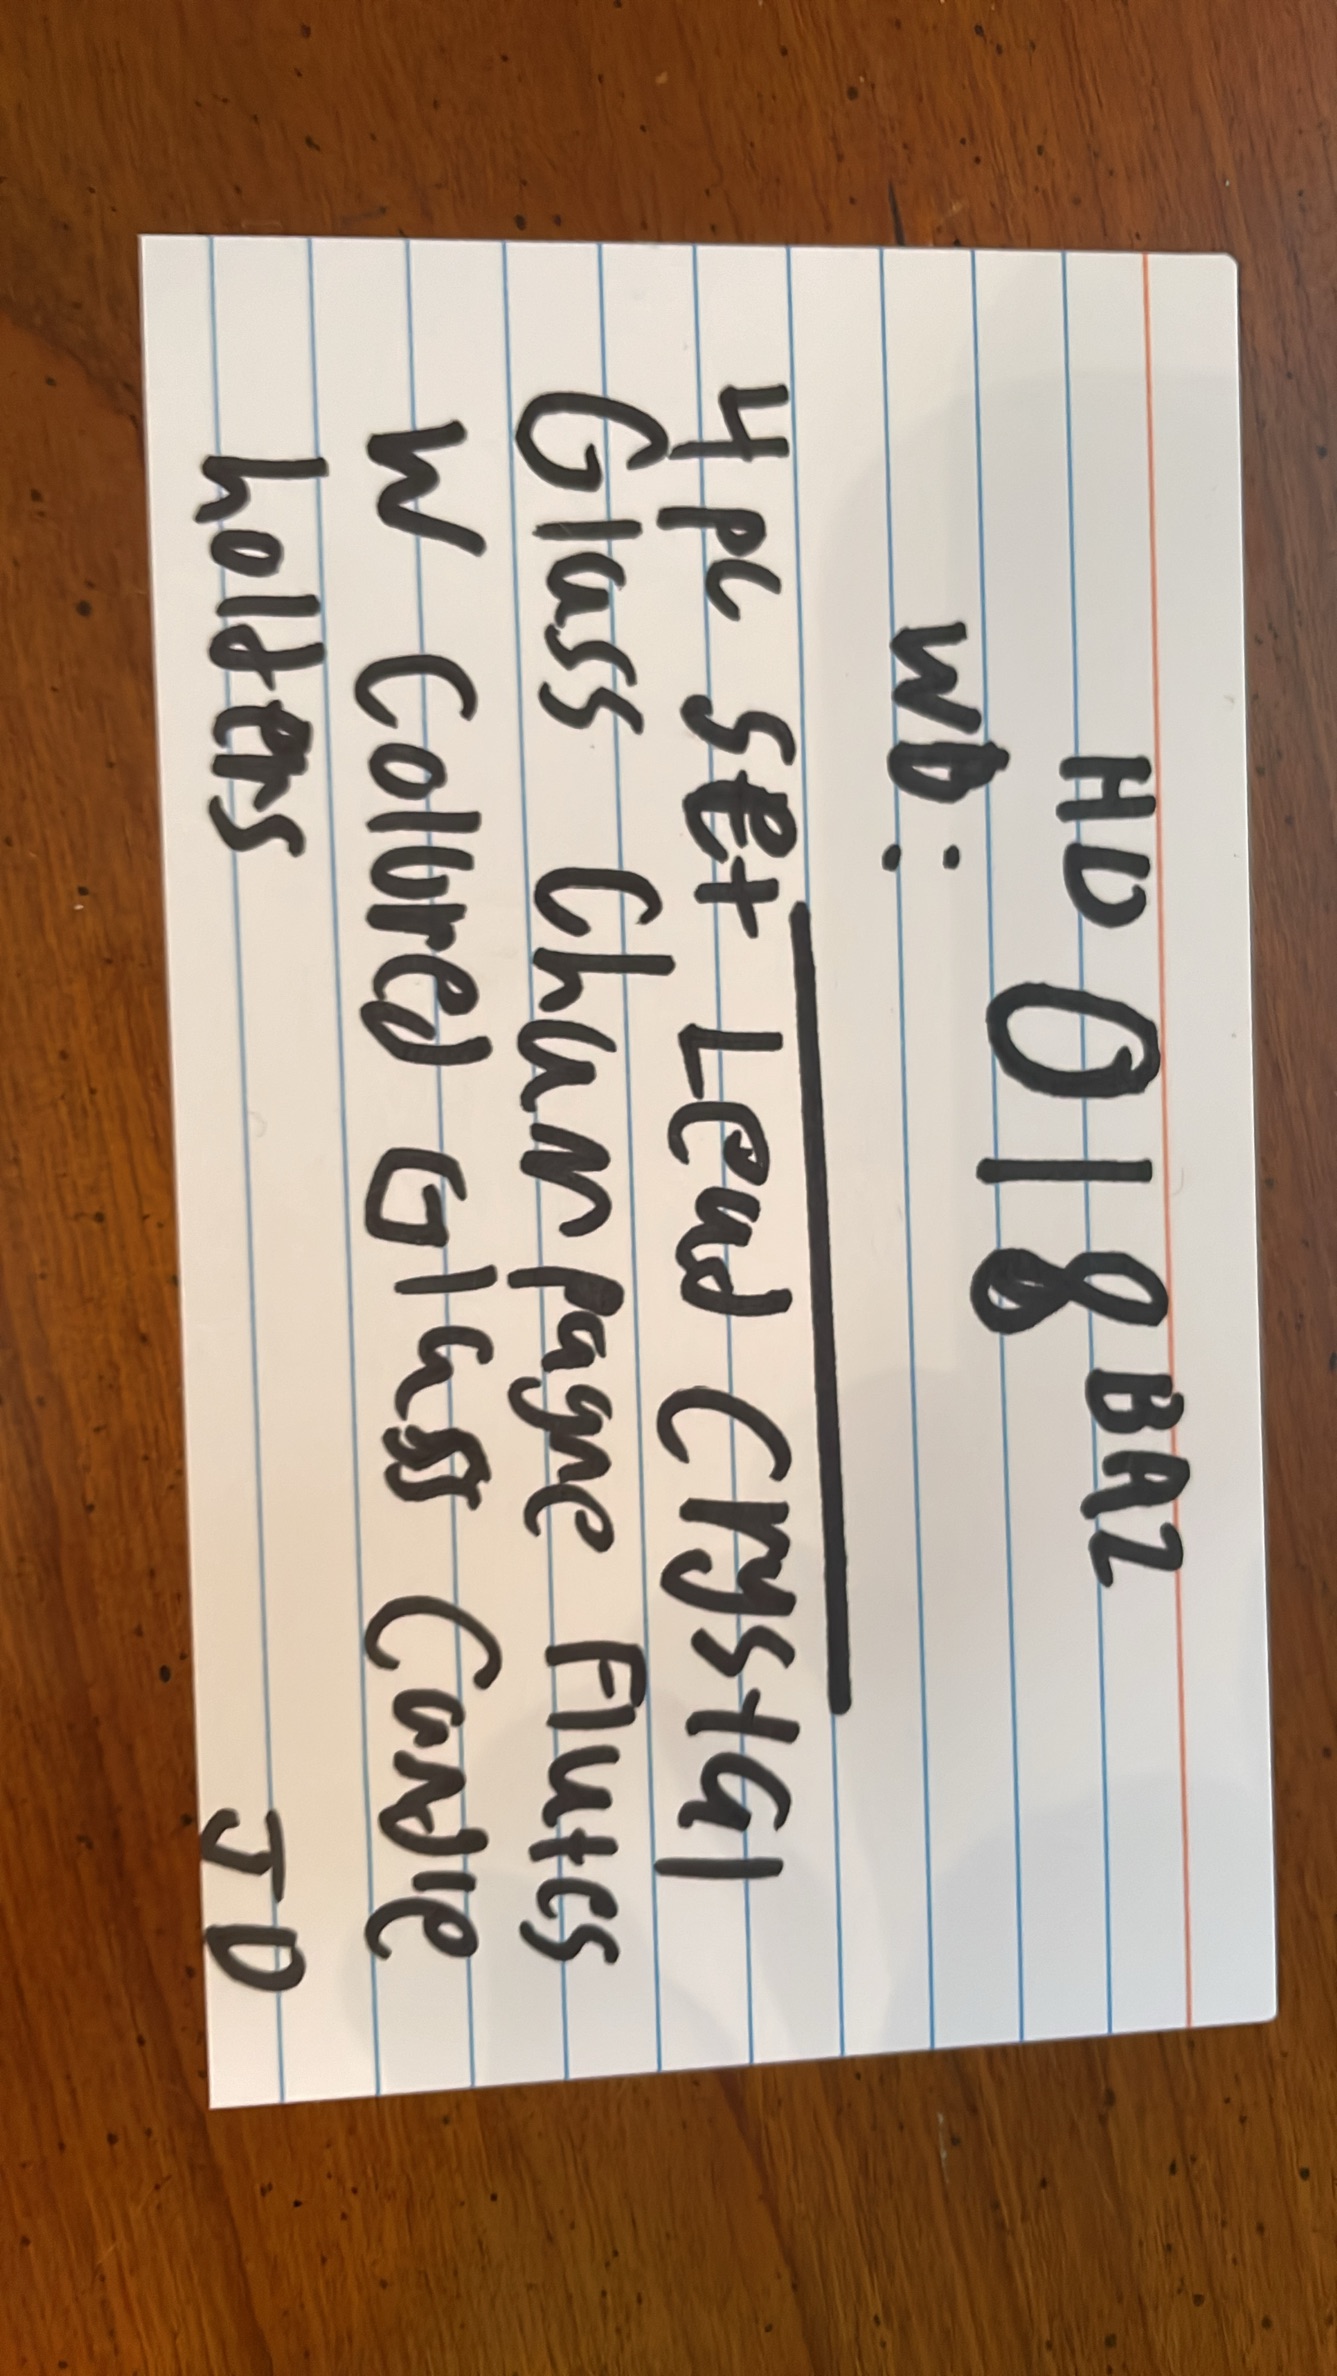 HD 018 BAZ
WD:
4 pc set Lead Crystal
Glass Champagne Flutes
W Colored Glass Candle
holders JD